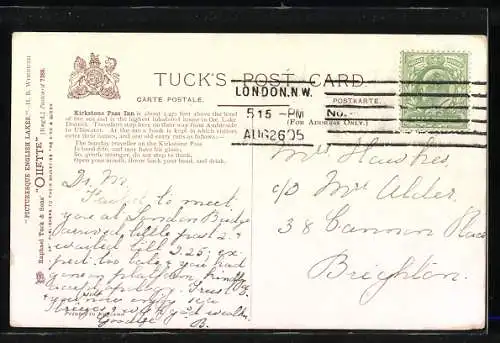 TUCK'S POST CARD
CARTE POSTALE.
POSTKARTE.
(For Address Only.)
LONDON.N.W.
5 15 - PM
AUG 26 05
No.
Kirkstone Pass Inn is about 1,475 feet above the level
of the sea and is the highest inhabited house in the Lake
District. Travellers stop here on their way from Ambleside
to Ullswater. At the inn a book is kept in which visitors
write their names, and one old entry runs as follows:—
The Sunday traveller on the Kirkstone Pass
So, gentle stranger, do not stop to think,
Open your mouth, throw back your head, and drink.
"PICTURESQUE ENGLISH LAKES"
Raphael Tuck & Sons' "OILETTE" [Regd.] Postcard 7286.
Dr. M.
to meet
you at London Bridge
arrived little past 2 &
waited till 2.25; ex-
pect too late & you had
gone on platform, kindly
accept apology. Trust
you now enjoy sea
breezes & with good wealth.
Goodbye B.
Mrs Hawkes,
c/o Mr Alder,
38 Cannon Place
Brighton.
Printed in England